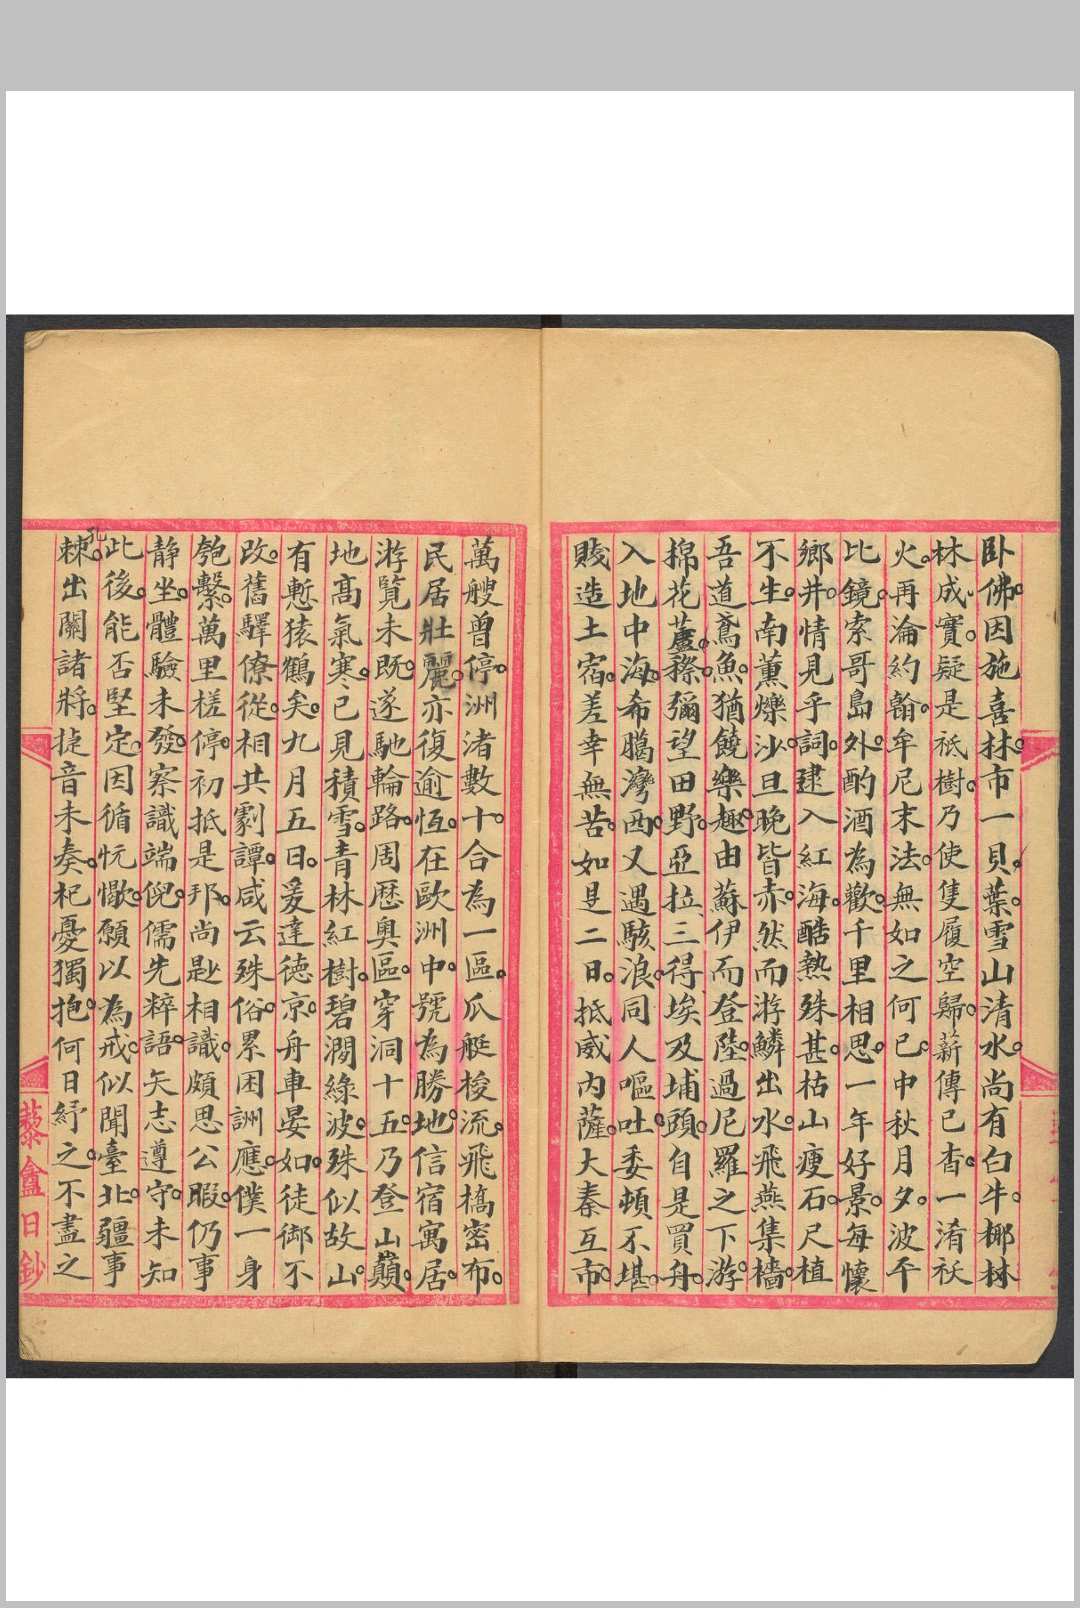 卧佛因施喜林市一貝葉雪山清水尚有白牛椰林
林成實疑是祇樹乃使隻履空歸薪傳已杳一淆祆
火再淪約翰牟尼末法無如之何已中秋月夕波平
比鏡索哥島外酌酒為歡千里相思一年好景每懷
鄉井情見乎詞逮入紅海酷熱殊甚枯山瘦石尺植
不生南薰爍沙旦晚皆赤然而游鱗出水飛燕集檣
吾道鳶魚猶饒樂趣由蘇伊而登陸過尼羅之下游
棉花蘆穄彌望田野亞拉三得埃及埔頭自是買舟
入地中海希臘灣西又遇駭浪同人嘔吐委頓不堪
賤造土宿差幸無苦如是二日抵威内薩大秦互市
萬艘曾停洲渚數十合為一區瓜艇梭流飛橋密布
民居壯麗亦復逾恆在歐洲中號為勝地信宿寓居
游覧未既遂馳輪路周歴奥區穿洞十五乃登山巔
地髙氣寒已見積雪青林紅樹碧澗綠波殊似故山
有慙猿鶴矣九月五日爰達德京舟車晏如徒御不
改舊驛僚從相共劇譚咸云殊俗累困詶應僕一身
匏繫萬里槎停初抵是邦尚尠相識頗思公暇仍事
静坐體驗未發察識端倪儒先粹語矢志遵守未知
此後能否堅定因循忨愒願以為戒似聞臺北疆事
孔棘出關諸將捷音未奏杞憂獨抱何日紓之不盡之
藜盦日鈔